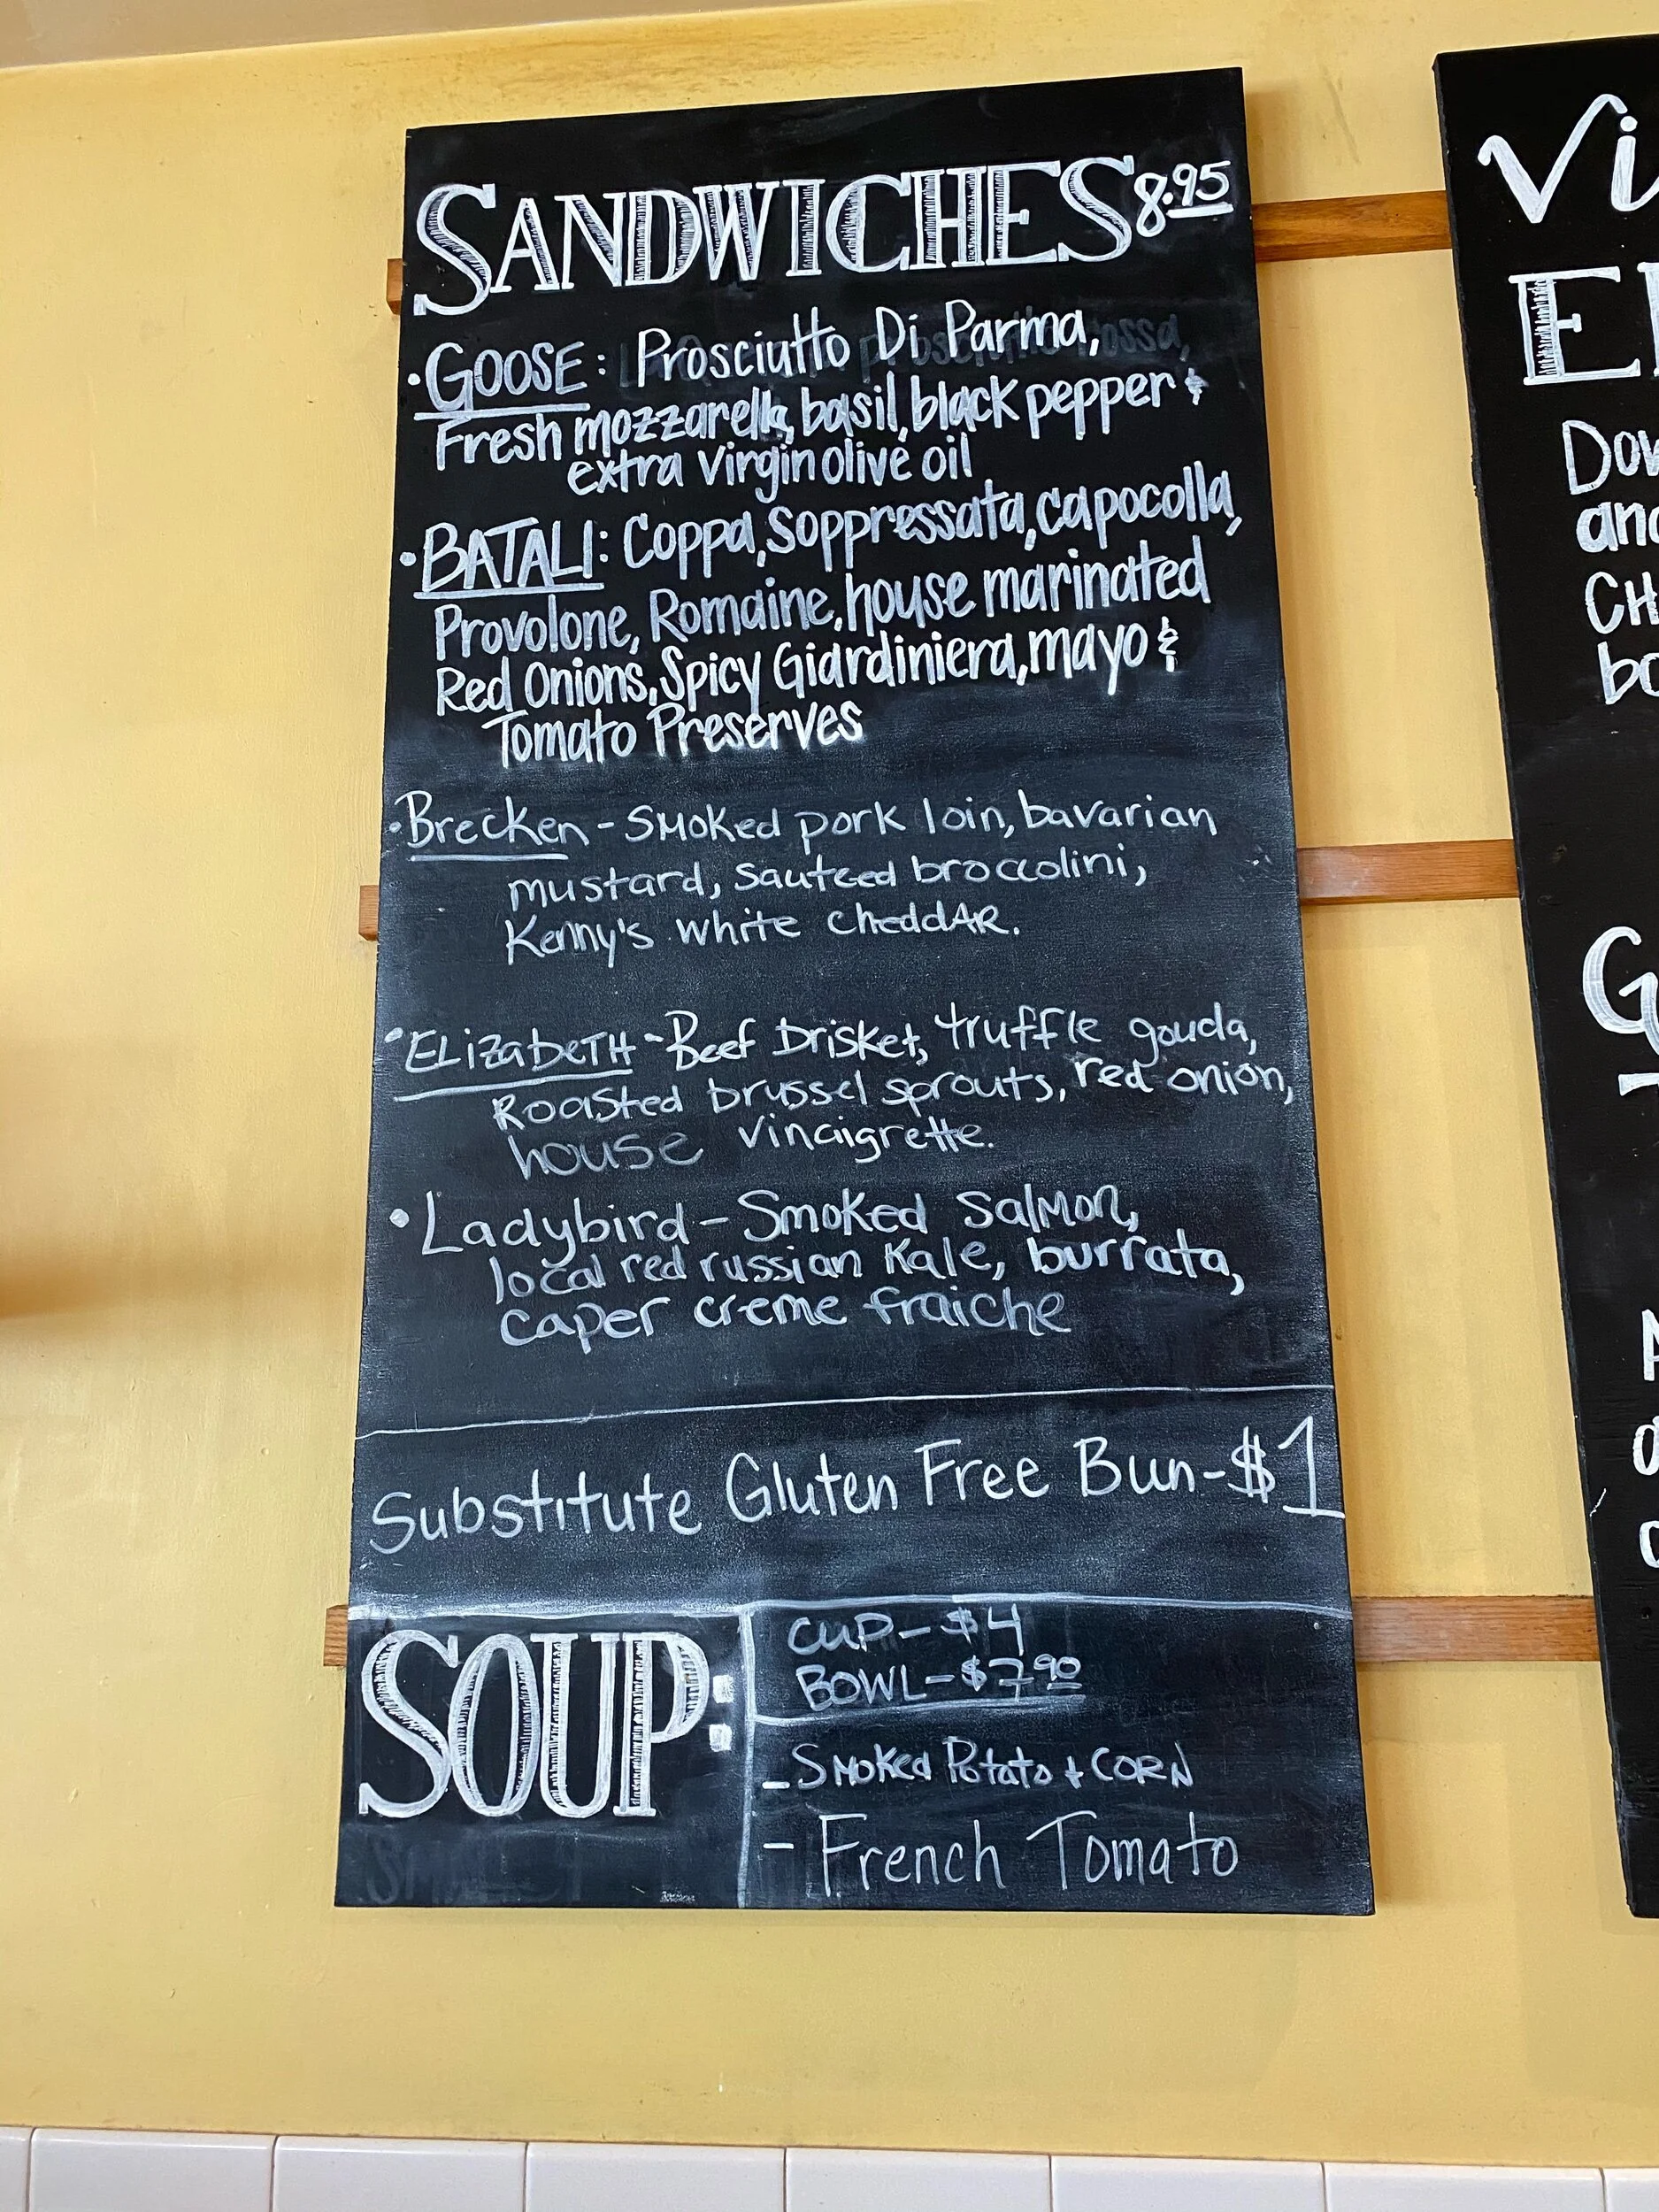 SANDWICHES 8.95
• GOOSE: Prosciutto Di Parma,
Fresh mozzarella, basil, black pepper &
extra virgin olive oil
• BATALI: Coppa, Soppressata, capocolla,
Provolone, Romaine, house marinated
Red Onions, Spicy Giardiniera, mayo &
Tomato Preserves
• Brecken - Smoked pork loin, bavarian
mustard, sauteed broccolini,
Kenny's white cheddAR.
• ELizabeTH - Beef brisket, truffle gouda,
Roasted brussel sprouts, red onion,
house vinaigrette.
• Ladybird - Smoked salmon,
local red russian Kale, burrata,
caper creme fraiche
Substitute Gluten Free Bun - $1
SOUP:
CUP - $4
BOWL - $7.90
- Smoked Potato + CORN
- French Tomato
Vi
E
Dow
and
CH
bo
G